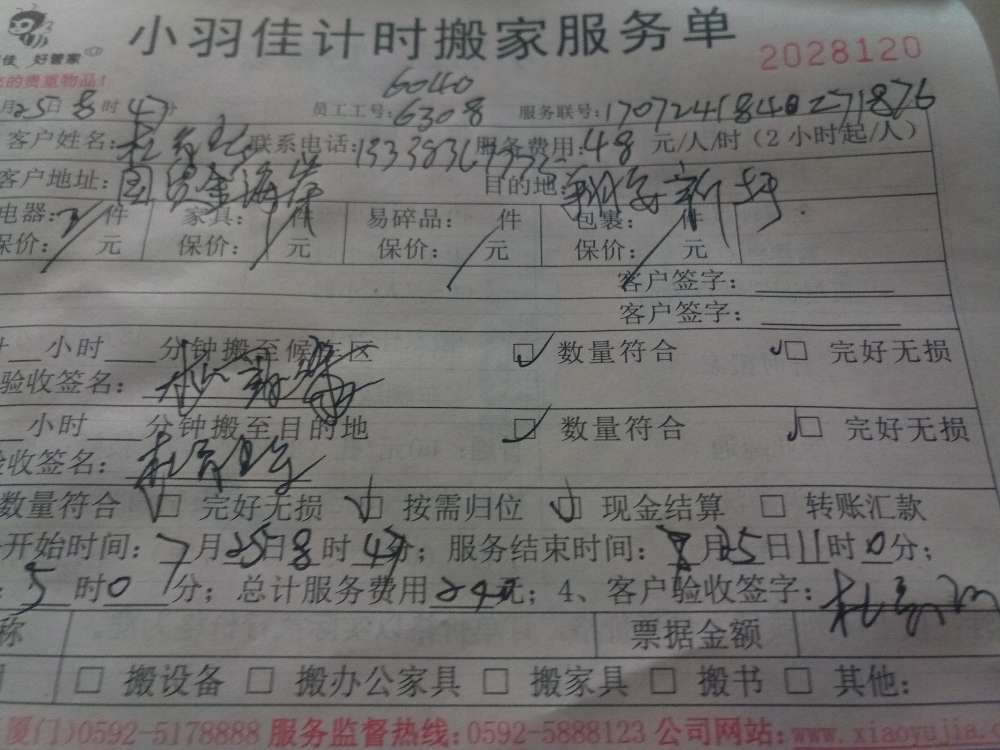 小羽佳计时搬家服务单
佳 好管家
2028120
的贵重物品!
6040
月25日8时47分 员工工号:6308 服务联号:
客户姓名: 联系电话: 服务费用:48元/人/时(2小时起/人)
客户地址:国贸金海岸 目的地:翔安新圩
电器: 件 家具: 件 易碎品: 件 包裹: 件
保价: 元 保价: 元 保价: 元 保价: 元
客户签字:
客户签字:
小时 分钟搬至候车区 数量符合 完好无损
验收签名:
小时 分钟搬至目的地 数量符合 完好无损
验收签名:
数量符合 完好无损 按需归位 现金结算 转账汇款
开始时间:7月25日8时47分;服务结束时间: 月25日11时0分;
5时0分;总计服务费用240元;4、客户验收签字:
称 票据金额
搬设备 搬办公家具 搬家具 搬书 其他:
厦门)0592-5178888 服务监督热线:0592-5888123 公司网站:www.xiaoyujia.c